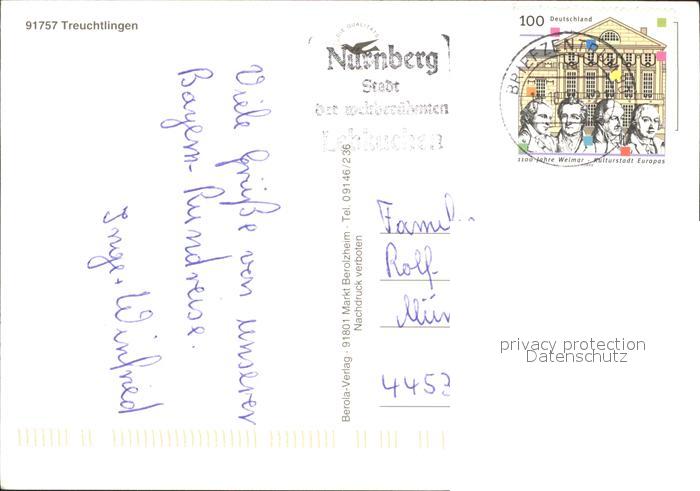 91757 Treuchtlingen
Viele Grüße von unserer
Bayern-Rundreise.
Inge + Winfried
Berola-Verlag · 91801 Markt Berolzheim · Tel. 09146/236
Nachdruck verboten
DIE QUALITÄT
Nürnberg
Stadt
der weltberühmten
Lebkuchen
BRIEFZENTR
100 Deutschland
1100 Jahre Weimar - Kulturstadt Europas
Famil
Rolf
Mün
4453
privacy protection
Datenschutz